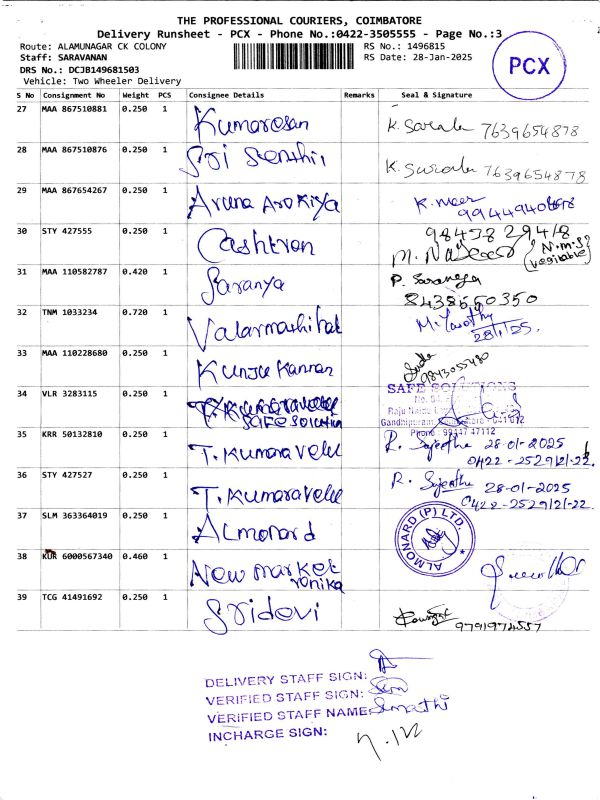 THE PROFESSIONAL COURIERS, COIMBATORE
Delivery Runsheet - PCX - Phone No.:0422-3505555 - Page No.:3
Route: ALAMUNAGAR CK COLONY
RS No.: 1496815
Staff: SARAVANAN
RS Date: 28-Jan-2025
DRS No.: DCJB149681503
Vehicle: Two Wheeler Delivery
PCX
S No Consignment No Weight PCS Consignee Details Remarks Seal & Signature
27 MAA 867510881 0.250 1 Kumaresan
7639654878
28 MAA 867510876 0.250 1
7639654878
29 MAA 867654267 0.250 1 Aruna Arokiya
30 STY 427555 0.250 1 Cashtron
31 MAA 110582787 0.420 1 Saranya
P. Saranya
8438650350
32 TNM 1033234 0.720 1 Valarmathi
28/1/25.
33 MAA 110228680 0.250 1 Kunju Kannan
9843055480
34 VLR 3283115 0.250 1 T. Kumaravelu
SAFE Solution
SAFE SOLUTIONS
Gandhipuram
Phone: 47112
35 KRR 50132810 0.250 1 T. Kumaravelu
R. Sujeetha 28-01-2025
0422-2529121-22.
36 STY 427527 0.250 1 T. Kumaravelu
R. Sujeetha 28-01-2025
0422-2529121-22
37 SLM 363364019 0.250 1 Almonard
ALMONARD (P) LTD.
38 KUR 6000567340 0.460 1 New Market
ronika
39 TCG 41491692 0.250 1 Sridevi
9791974557
DELIVERY STAFF SIGN:
VERIFIED STAFF SIGN:
VERIFIED STAFF NAME: Sumathi
INCHARGE SIGN: